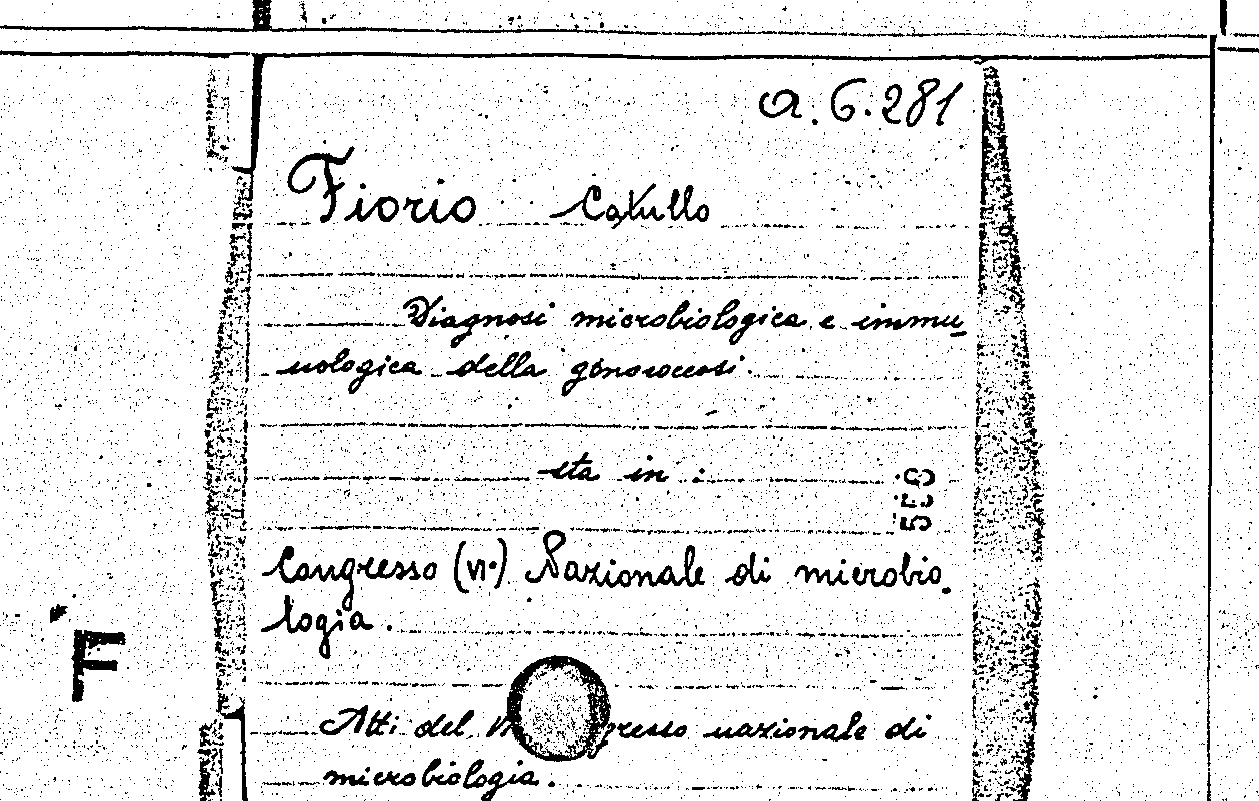 a. G. 281
Fiorio Catullo
Diagnosi microbiologica e immu_
nologica della gonococcosi.
sta in :
558
Congresso (VI°) Nazionale di microbio_
logia.
F
Atti del gresso nazionale di
microbiologia.